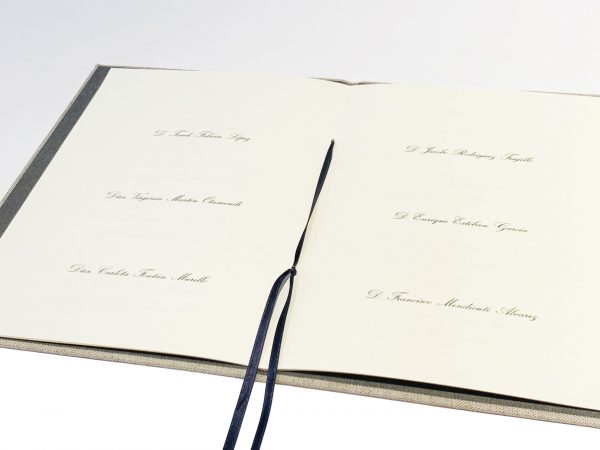 D. Fabián López
Dña. Virginia Martín Otamendi
Dña. Carlota Fontán Murillo
D. Jacobo Rodríguez Trujillo
D. Enrique Esteban García
D. Francisco Álvarez